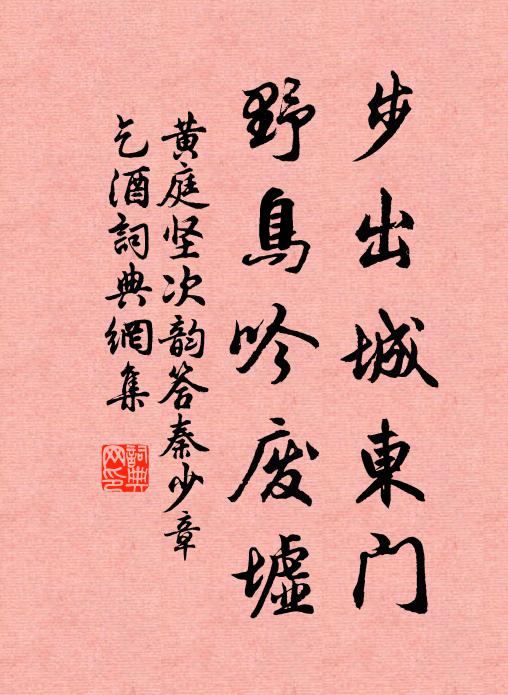 步出城東门
野鳥吟废墟
黄庭坚次韵答秦少章
乞酒詞典網集
詞典
网印